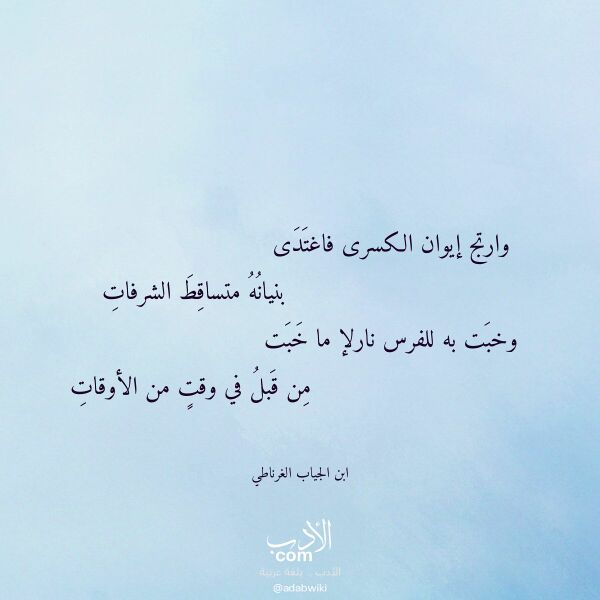 وارتج إيوان الكسرى فاغتَدَى
بنيانُهُ متساقِطَ الشرفاتِ
وخبَت به للفرس نارلإ ما خَبَت
مِن قَبلُ في وقتٍ من الأوقاتِ
ابن الجياب الغرناطي
الأدب
com
الأدب .. بلغة عربية
@adabwiki